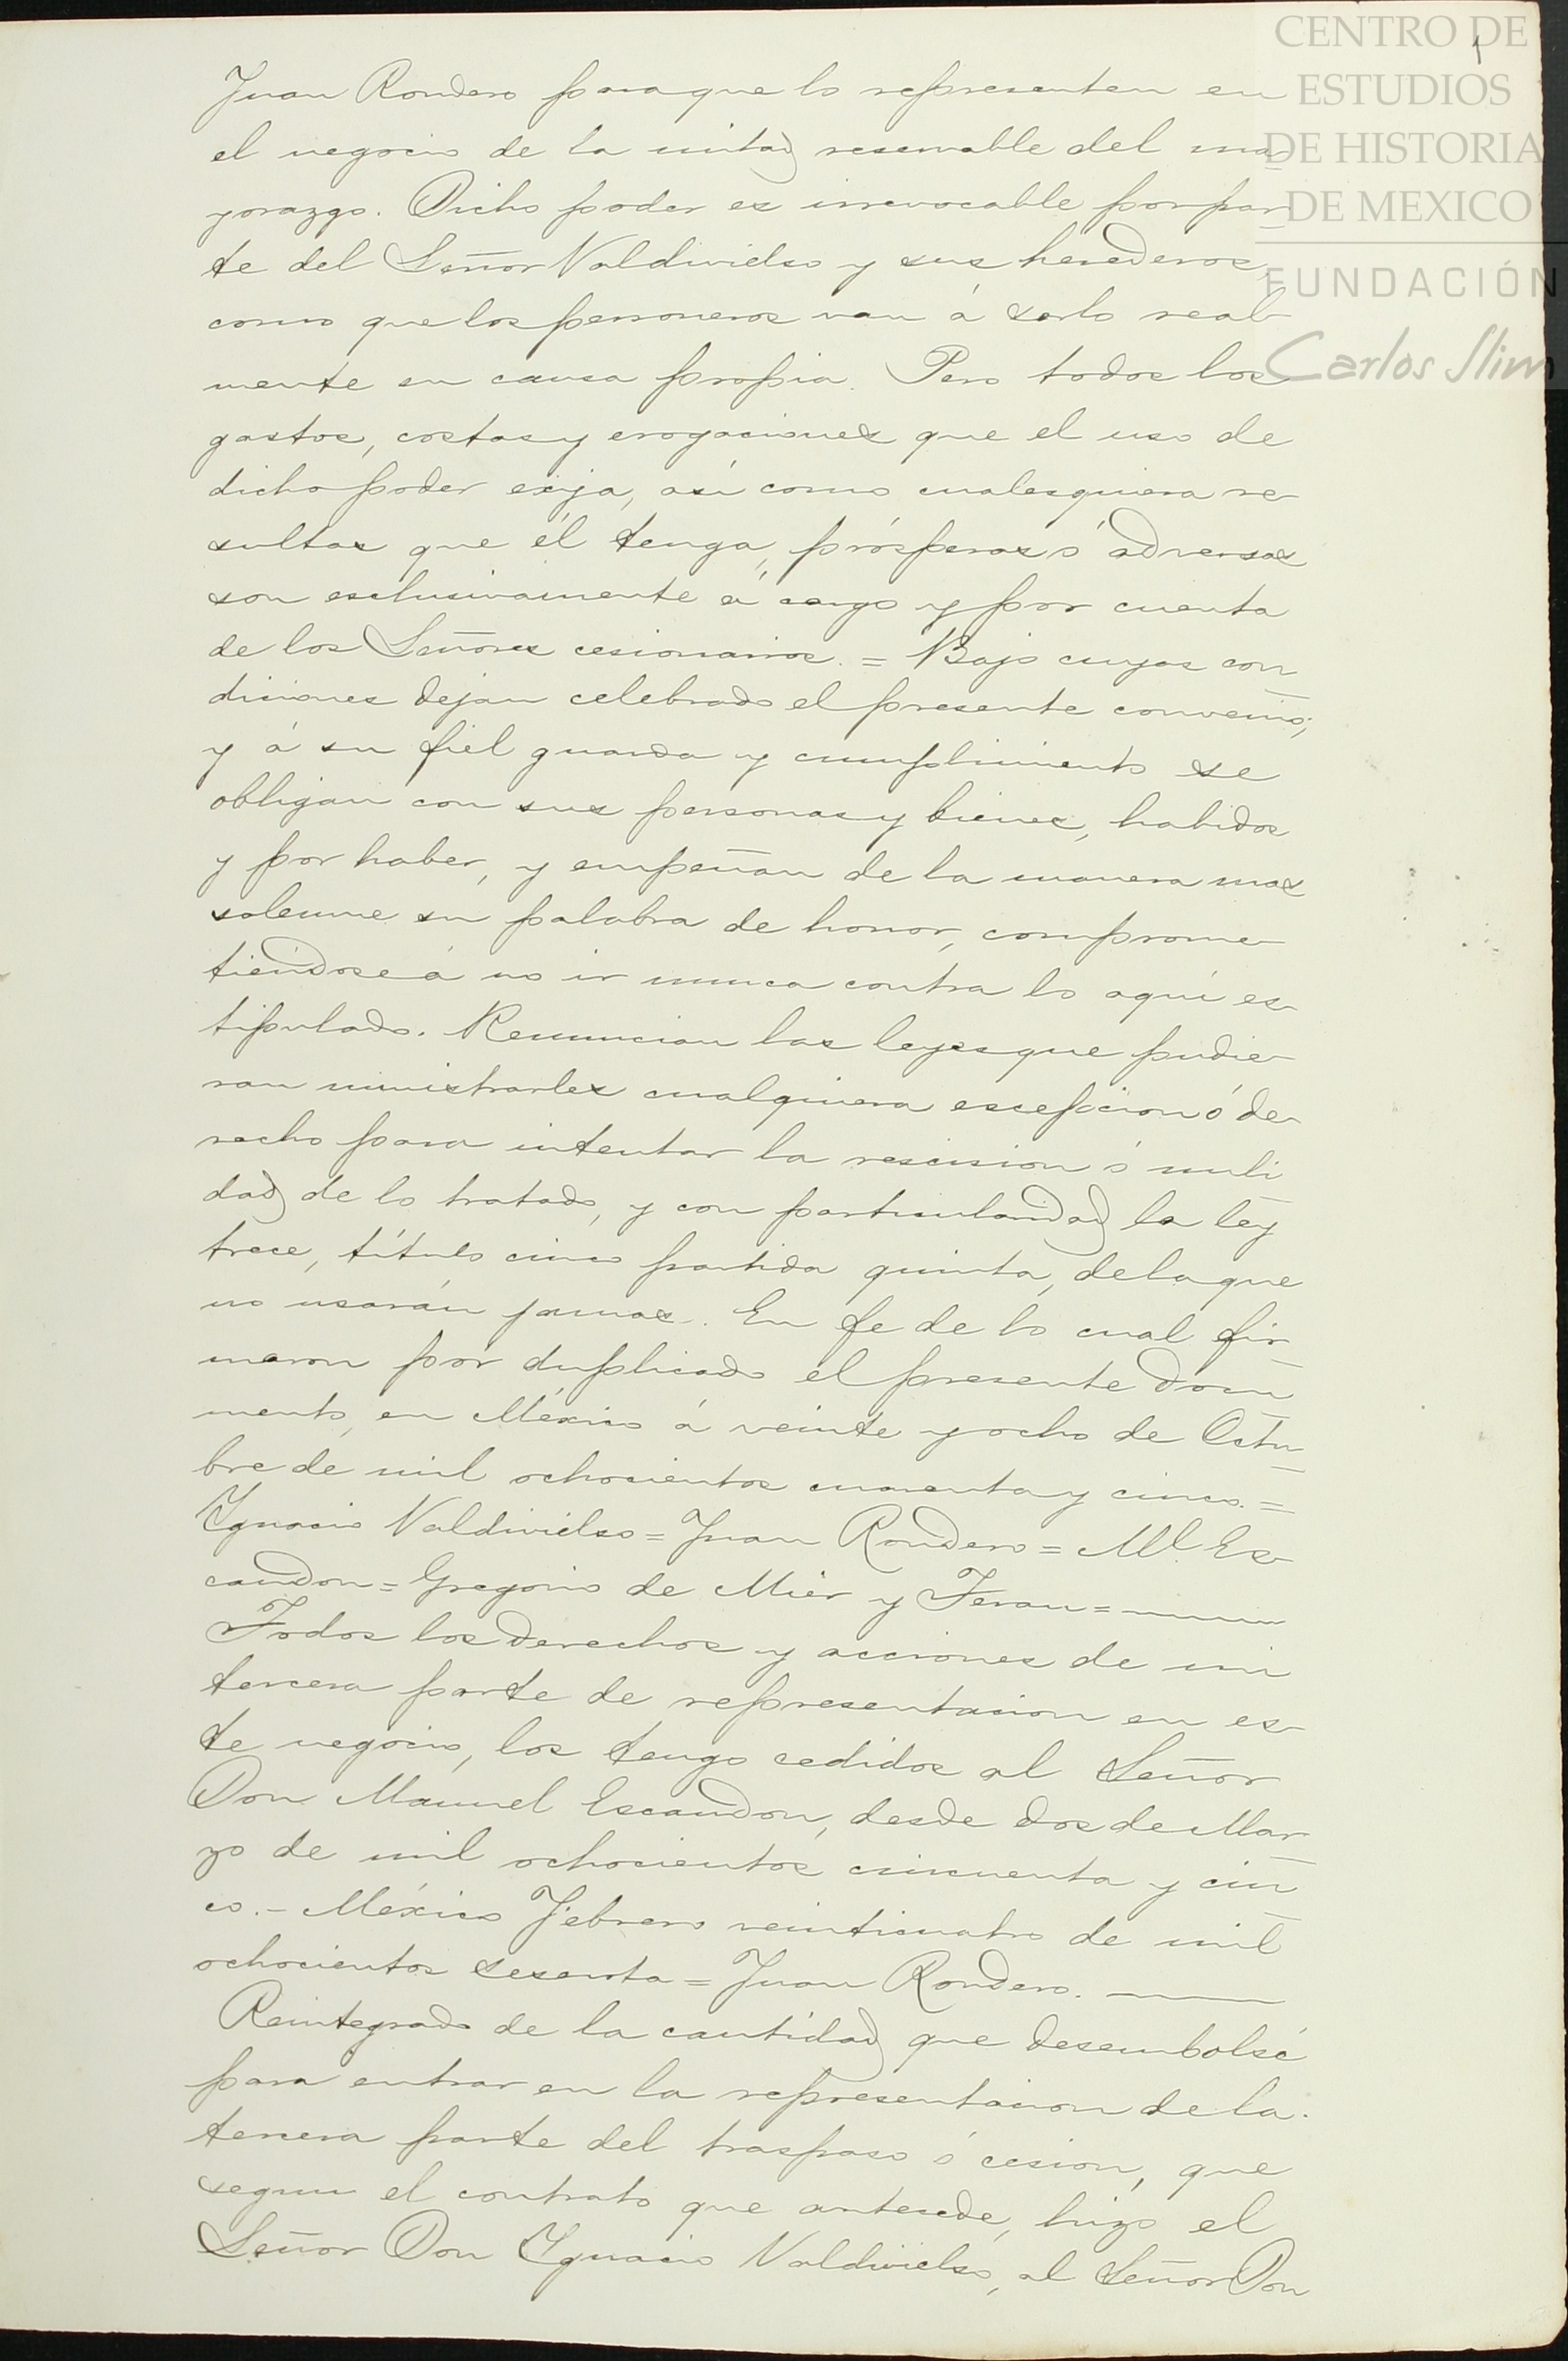 CENTRO DE
ESTUDIOS
DE HISTORIA
DE MEXICO
FUNDACIÓN
Carlos Slim
1
Juan Rondero para que lo representen en
el negocio de la mitad reservable del ma-
yorazgo. Dicho poder es irrevocable por par-
te del Señor Valdivielso y sus herederos,
como que los personeros van á serlo real-
mente en causa propia. Pero todos los
gastos, costas y erogaciones que el uso de
dicho poder exija, así como cualesquiera re-
sultas que él tenga, prósperas ó adversas
son esclusivamente á cargo y por cuenta
de los Señores cesionarios. = Bajo cuyas con
diciones dejan celebrado el presente convenio;
y á su fiel guarda y cumplimiento se
obligan con sus personas y bienes, habidos
y por haber, y empeñan de la manera mas
solemne su palabra de honor, comprome-
tiéndose á no ir nunca contra lo aquí es-
tipulado. Renuncian las leyes que pudie-
ran ministrarles cualquiera escepcion ó de-
recho para intentar la rescision ó nuli
dad de lo tratado, y con particularidad la ley
trece, título cinco partida quinta, de la que
no usarán jamas. En fe de lo cual fir
maron por duplicado el presente docu
mento, en México á veinte y ocho de Octu
bre de mil ochocientos cuarenta y cinco. =
Ygnacio Valdivielso = Juan Rondero = Ml. Es-
candon = Gregorio de Mier y Teran =
Todos los derechos y acciones de mi
tercera parte de representacion en es-
te negocio, los tengo cedidos al Señor
Don Manuel Escandon, desde dos de Mar
zo de mil ochocientos cincuenta y cin
co. - México Febrero veinticuatro de mil
ochocientos sesenta = Juan Rondero.
Reintegrado de la cantidad que desembolsé
para entrar en la representacion de la
tercera parte del traspaso ó cesion, que
segun el contrato que antecede, hizo el
Señor Don Ygnacio Valdivielso, al Señor Don